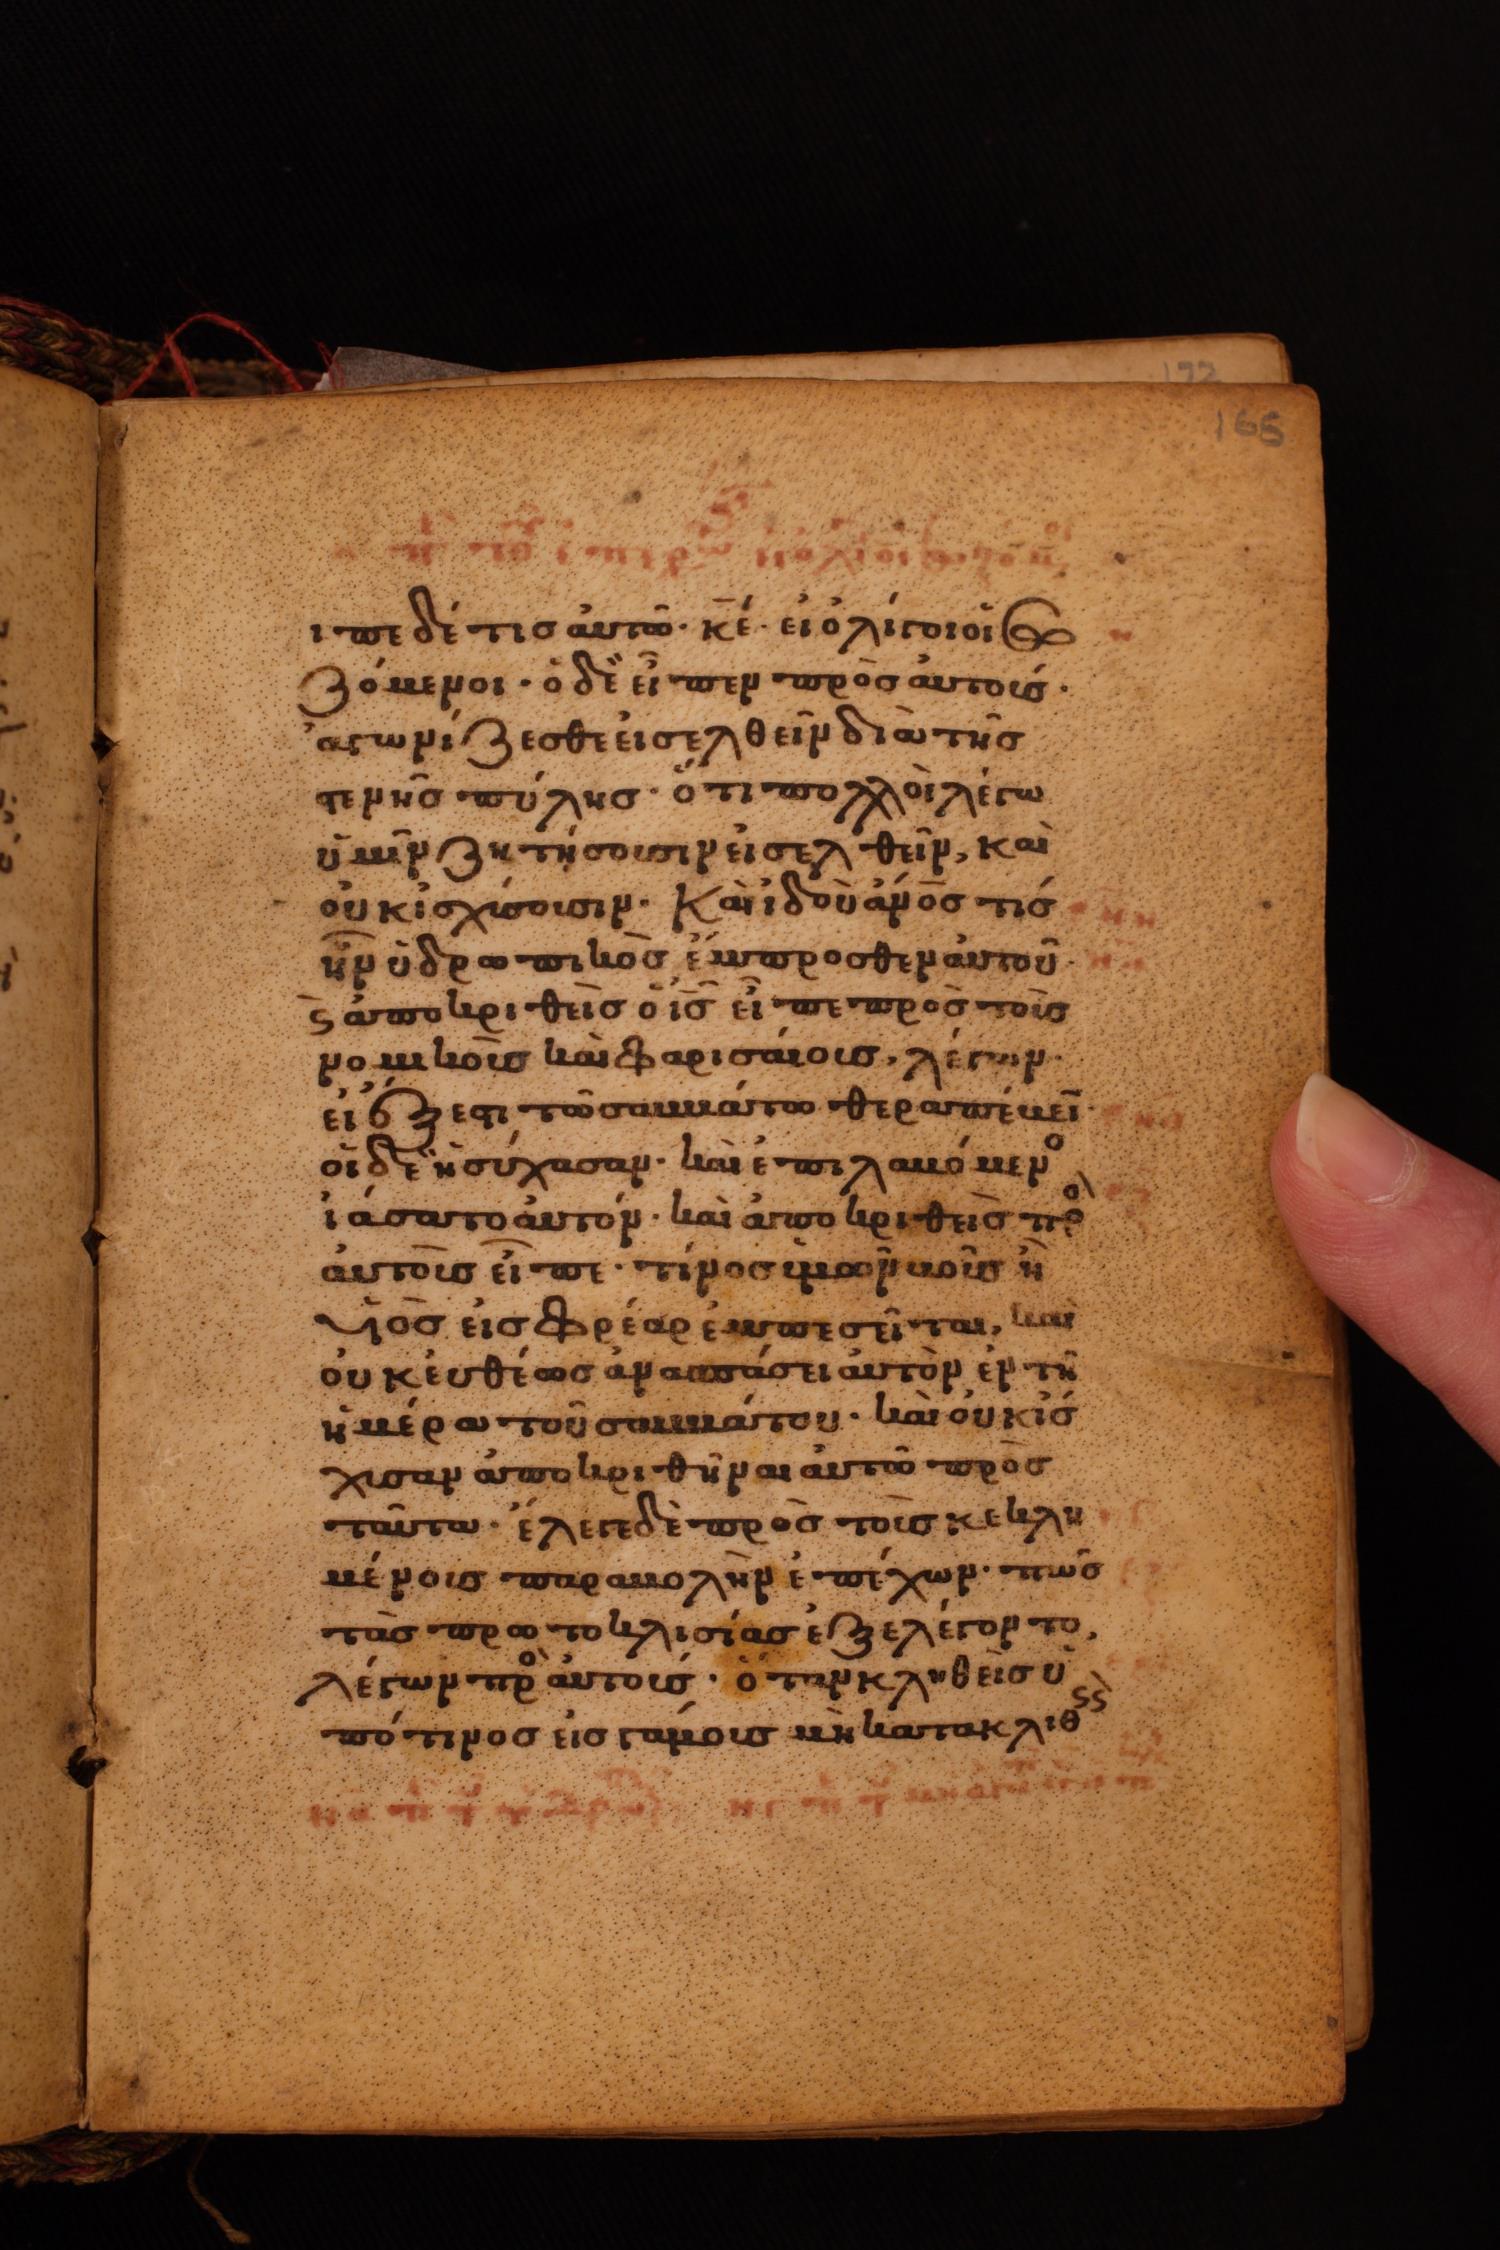 172
165
ιπε δέ τις αὐτῶ· κ̅έ· εἰ ὀλίγοι οἱ σω
ζόμενοι· ὁ δὲ εἶπεν πρὸς αὐτούς·
ἀγωνίζεσθε εἰσελθεῖν διὰ τῆς
στενῆς πύλης· ὅτι πολλοὶ λέγω
ὑμῖν ζητήσουσιν εἰσελθεῖν, καὶ
οὐκ ἰσχύσουσιν· Καὶ ἰδοὺ ἀ̅ν̅ο̅ς τίς
ἦν ὑδρωπικὸς ἔμπροσθεν αὐτοῦ·
ϛ̀ ἀποκριθεὶς ὁ ἰ̅ς̅ εἶπε πρὸς τοὺς
νομικοὺς καὶ φαρισαίους, λέγων·
εἰ ἔξεστι τῶ σαββάτω θεραπέυειν·
οἱ δὲ ἡσύχασαν· καὶ ἐπιλαβόμενο
ἰάσατο αὐτόν· καὶ ἀποκριθεὶς πρὸ
αὐτοὺς εἶπε· τίνος ὑμῶν βοῦς ἢ
υἱὸς εἰς φρέαρ ἐμπεσεῖται, καὶ
οὐκ ἐυθέως ἀνασπάσει αὐτὸν ἐν τῆ
ἡμέρα τοῦ σαββάτου· καὶ οὐκ ἰσ
χυσαν ἀποκριθῆναι αὐτῶ πρὸς
ταῦτα· ἔλεγε δὲ πρὸς τοὺς κεκλη
μένους παραβολὴν ἐπέχων· πῶς
τὰς πρωτοκλισίας ἐξελέγοντο,
λέγων πρὸ αὐτούς· ὅταν κληθεὶς ὑ
πό τινος εἰς γάμους μὴ κατακλιθ